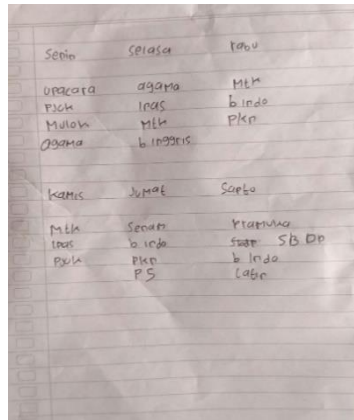 Senin selasa rabu
upacara agama Mtk
PJOK Ipas b indo
Mulok Mtk Pkn
agama b inggris
kamis Jumat Saptu
Mtk Senam Pramuka
Ipas b indo SB DP
PJOK Pkn b Indo
PS